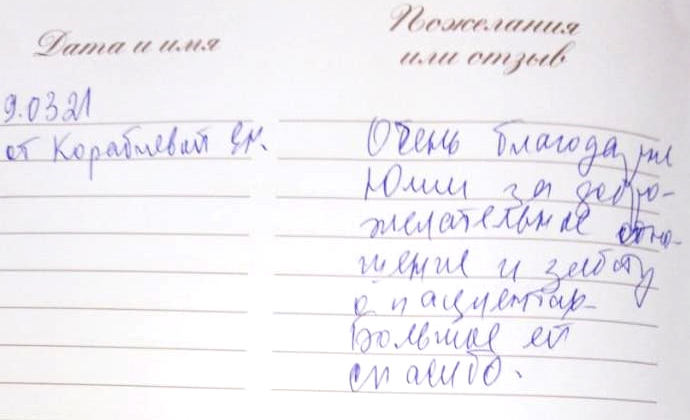 Дата и имя
Пожелания
или отзыв
9.03 21
от Кораблевой Ен.
Очень благодарны
Юлии за добро-
желательное отно-
шение и заботу
о пациентах.
Большое ей
спасибо.